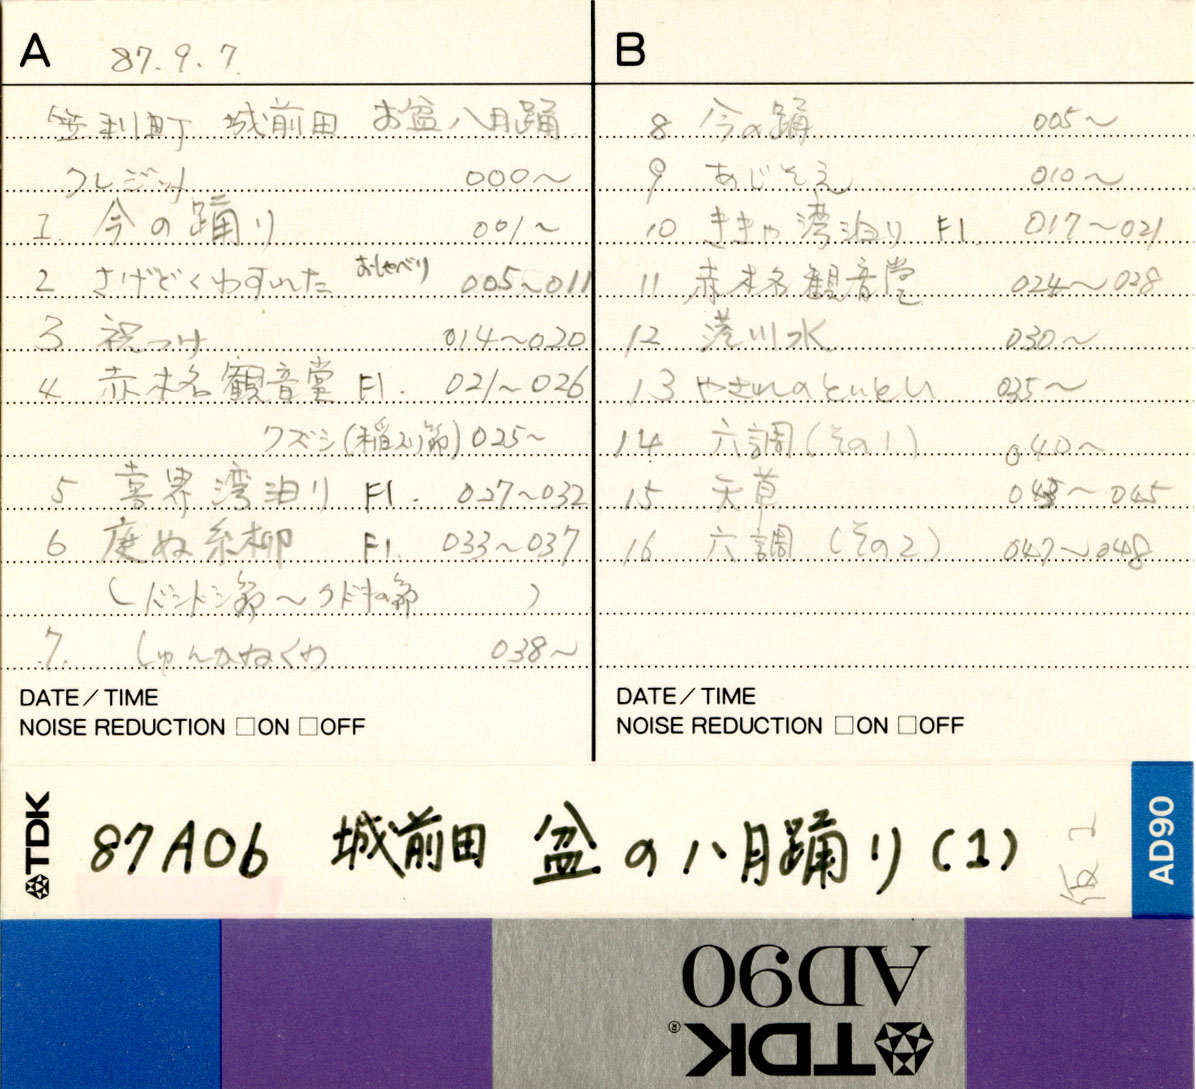 A 87.9.7.
笠利町 城前田 お盆八月踊
クレジット 000〜
1. 今の踊り 001〜
2 さけどくわすれた おしゃべり 005〜011
3 祝つけ 014〜020
4 赤木名観音堂 Fl. 021〜026
クズシ(稲スリ節) 025〜
5 喜界湾泊り Fl. 027〜032
6 庭ぬ糸柳 Fl. 033〜037
(ドンドン節〜クドキの節 )
7. しゅんかねくゎ 038〜
DATE/TIME
NOISE REDUCTION □ON □OFF
B
8 今の踊 005〜
9 あじそえ 010〜
10 ききゃ湾泊り Fl. 017〜021
11 赤木名観音堂 024〜028
12 港川水 030〜
13 やされのといとい 035〜
14 六調(その1) 040〜
15 天草 043〜045
16 六調(その2) 047〜048
DATE/TIME
NOISE REDUCTION □ON □OFF
TDK 87A06 城前田 盆の八月踊り(1) 仮1 AD90
AD90
TDK®